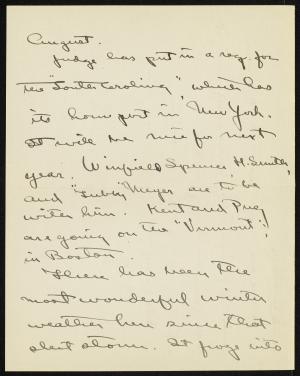 August.
Judge has put in a req. for
the "South Carolina", which has
its home port in New York.
It will be nice for next
year. Winfield Spencer, H. Smith,
and "Tubby" Meyer are to be
with him. Kent and
are going on the "Vermont";
in Boston.
There has been the
most wonderful winter
weather here since that
sleet storm. It froze into